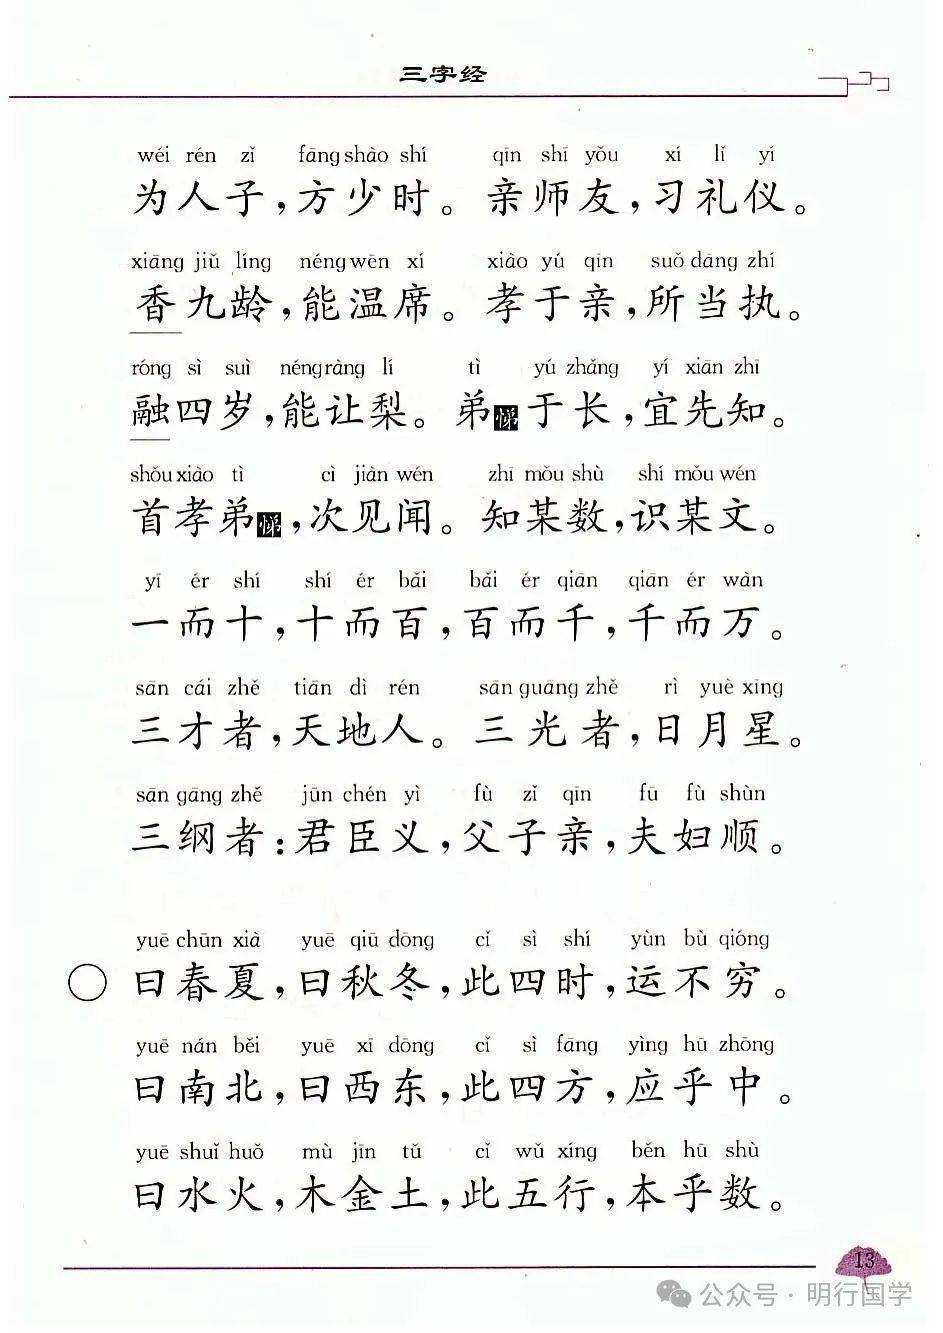 三字经
wéi rén zǐ fāng shào shí qīn shī yǒu xí lǐ yí
为人子，方少时。亲师友，习礼仪。
xiāng jiǔ líng néng wēn xí xiào yú qīn suǒ dāng zhí
香九龄，能温席。孝于亲，所当执。
róng sì suì néng ràng lí tì yú zhǎng yí xiān zhī
融四岁，能让梨。弟悌于长，宜先知。
shǒu xiào tì cì jiàn wén zhī mǒu shù shí mǒu wén
首孝弟悌，次见闻。知某数，识某文。
yī ér shí shí ér bǎi bǎi ér qiān qiān ér wàn
一而十，十而百，百而千，千而万。
sān cái zhě tiān dì rén sān guāng zhě rì yuè xīng
三才者，天地人。三光者，日月星。
sān gāng zhě jūn chén yì fù zǐ qīn fū fù shùn
三纲者：君臣义，父子亲，夫妇顺。
yuē chūn xià yuē qiū dōng cǐ sì shí yùn bù qióng
曰春夏，曰秋冬，此四时，运不穷。
yuē nán běi yuē xī dōng cǐ sì fāng yìng hū zhōng
曰南北，曰西东，此四方，应乎中。
yuē shuǐ huǒ mù jīn tǔ cǐ wǔ xíng běn hū shù
曰水火，木金土，此五行，本乎数。
13
公众号·明行国学